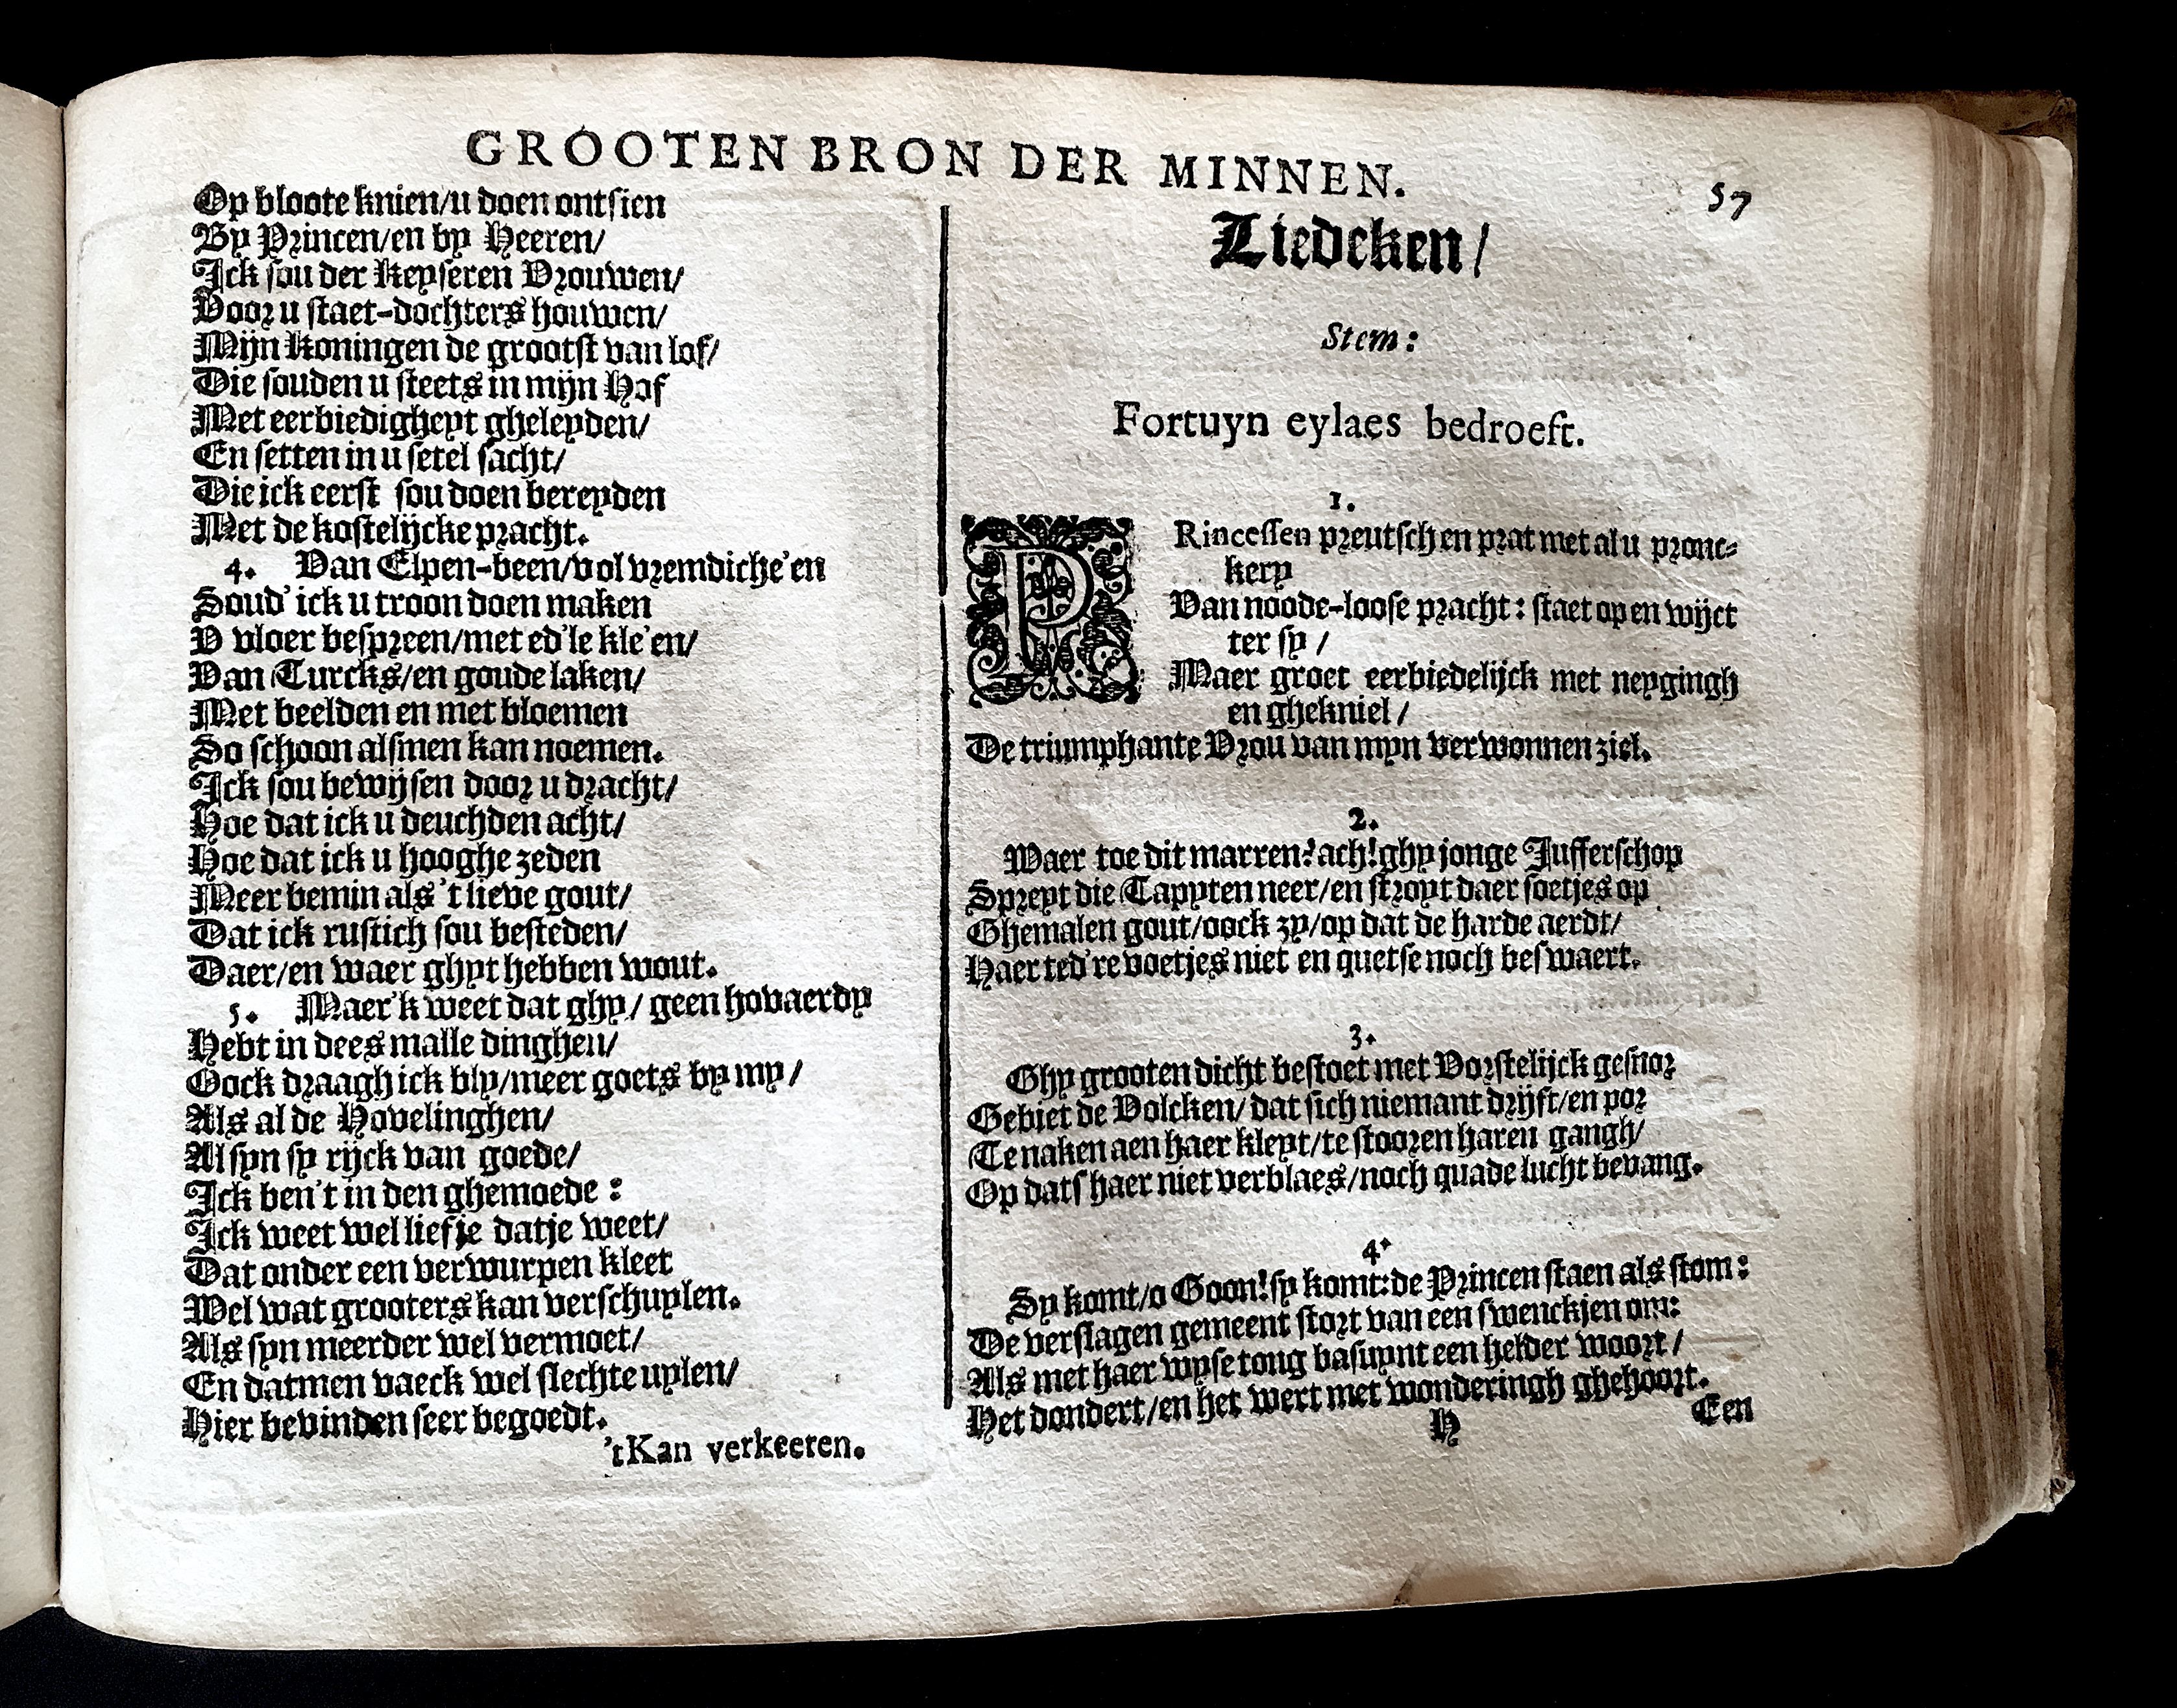 GROOTEN BRON DER MINNEN.
57
Op bloote knien/u doen ontsien
By Princen/en by Heeren/
Ick sou der Keyseren Vrouwen/
Voor u staet-dochters houwen/
Mijn Koningen de grootst van lof/
Die souden u steets in mijn Hof
Met eerbiedigheyt gheleyden/
En setten in u setel sacht/
Die ick eerst sou doen bereyden
Met de kostelijcke pracht.
4. Van Elpen-been/vol vremdiche'en
Soud' ick u troon doen maken
V vloer bespreen/met ed'le kle'en/
Van Turcks/en goude laken/
Met beelden en met bloemen
So schoon alsmen kan noemen.
Ick sou bewijsen door u dracht/
Hoe dat ick u deuchden acht/
Hoe dat ick u hooghe zeden
Meer bemin als 't lieve gout/
Dat ick rustich sou besteden/
Daer/en waer ghyt hebben wout.
5. Maer'k weet dat ghy/ geen hovaerdy
Hebt in dees malle dinghen/
Oock draagh ick bly/meer goets by my/
Als al de Hovelinghen/
Al syn sy rijck van goede/
Ick ben't in den ghemoede:
Ick weet wel liefje datje weet/
Dat onder een verwurpen kleet
Wel wat grooters kan verschuylen.
Als syn meerder wel vermoet/
En datmen vaeck wel slechte uylen/
Hier bevinden seer begoedt.
't Kan verkeeren.
Liedeken/
Stem:
Fortuyn eylaes bedroeft.
1.
PRincessen preutsch en prat met al u pronc-
kery
Van noode-loose pracht: staet op en wijct
ter sy/
Maer groet eerbiedelijck met neygingh
en ghekniel/
De triumphante Vrou van myn verwonnen ziel.
2.
Waer toe dit marren? ach! ghy jonge Jufferschop
Spreyt die Tapyten neer/en stroyt daer soetjes op
Ghemalen gout/oock zy/op dat de harde aerdt/
Haer ted're voetjes niet en quetse noch beswaert.
3.
Ghy grooten dicht bestoet met Vorstelijck gesnor
Gebiet de Volcken/dat sich niemant drijft/en por
Te naken aen haer kleyt/te stooren haren gangh/
Op dats haer niet verblaes/noch quade lucht bevang.
4.
Sy komt/o Goon! sy komt: de Princen staen als stom:
De verslagen gemeent stort van een swenckjen om:
Als met haer wyse tong basuynt een helder woort/
Het dondert/en het wert met wonderingh ghehoort.
H
Een